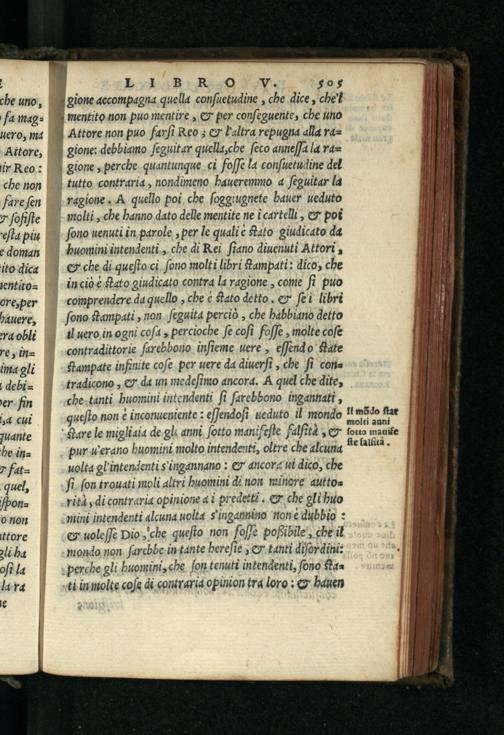 LIBRO V. 505
gione accompagna quella consuetudine, che dice, che'l
mentito non puo mentire, & per conseguente, che uno
Attore non puo farsi Reo; & l'altra repugna alla ra=
gione: debbiamo seguitar quella, che seco annessa la ra=
gione, perche quantunque ci fosse la consuetudine del
tutto contraria, nondimeno haueremmo a seguitar la
ragione. A quello poi che soggiugnete hauer ueduto
molti, che hanno dato delle mentite ne i cartelli, & poi
sono uenuti in parole, per le quali è stato giudicato da
huomini intendenti, che di Rei siano diuenuti Attori,
& che di questo ci sono molti libri stampati: dico, che
in ciò è stato giudicato contra la ragione, come si puo
comprendere da quello, che è stato detto. & se i libri
sono stampati, non seguita perciò, che habbiano detto
il uero in ogni cosa, percioche se così fosse, molte cose
contradittorie sarebbono insieme uere, essendo state
stampate infinite cose per uere da diuersi, che si con=
tradicono, & da un medesimo ancora. A quel che dite,
che tanti huomini intendenti si sarebbono ingannati,
questo non è inconueniente: essendosi ueduto il mondo
stare le migliaia de gli anni sotto manifeste falsità, &
pur u'erano huomini molto intendenti, oltre che alcuna
uolta gl'intendenti s'ingannano: & ancora ui dico, che
si son trouati molti altri huomini di non minore autto=
rità, di contraria opinione a i predetti. & che gli huo
mini intendenti alcuna uolta s'ingannino non è dubbio:
& uolesse Dio, che questo non fosse possibile, che il
mondo non sarebbe in tante heresie, & tanti disordini:
perche gli huomini, che son tenuti intendenti, sono sta=
ti in molte cose di contraria opinion tra loro: & hauen
Il mōdo star
molti anni
sotto manife
ste falsità.
che uno,
fa mag=
uero, ma
Attore,
Reo:
che non
fare sen
& sofiste
resta piu
e doman
tito dica
mentito=
ore, per
hauere,
era obli
re, in=
ima gli
debi=
per fin
a cui
quante
che in=
& fat=
quel,
rispon=
non
attore
gli ha
cosi la
la ra